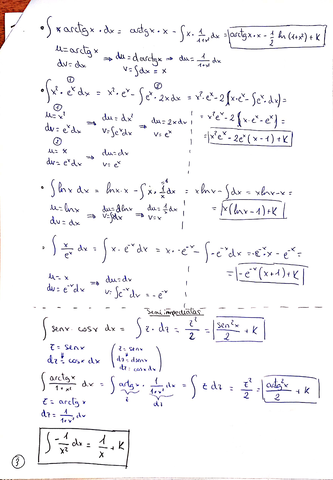 ∫ arctg x · dx = arctg x · x − ∫ x · 1/(1+x²) dx = arctg x · x − 1/2 ln(1+x²) + K
u = arctg x ⇒ du = d arctg x ⇒ du = 1/(1+x²) dx
dv = dx v = ∫dx = x
① 
∫ x² · eˣ dx = x² · eˣ − ∫ eˣ · 2x dx = x² · eˣ − 2 [x · eˣ − ∫ eˣ dx] =
①
u = x² ⇒ du = dx² ⇒ du = 2x dx = x² eˣ − 2 [x · eˣ − eˣ] =
dv = eˣ dx v = ∫eˣ dx v = eˣ
② = x² eˣ − 2eˣ (x − 1) + K
u = x ⇒ du = dx
dv = eˣ dx v = eˣ
∫ ln x dx = ln x · x − ∫ x · 1/x dx = x ln x − ∫ dx = x ln x − x =
u = ln x ⇒ du = d ln x ⇒ du = 1/x dx = x (ln x − 1) + K
dv = dx v = ∫dx v = x
∫ x/eˣ dx = ∫ x · e⁻ˣ dx = x · − e⁻ˣ − ∫ − e⁻ˣ dx = − e⁻ˣ · x − e⁻ˣ =
u = x ⇒ du = dx = − e⁻ˣ (x + 1) + K
dv = e⁻ˣ dx v = ∫e⁻ˣ dx = − e⁻ˣ
Semi inmediatas
∫ sen x cos x dx = ∫ z · dz = z²/2 = sen² x/2 + K
z = sen x (z = sen x
dz = cos x dx dz = d sen x
dz = cos x dx)
∫ arctg x/(1+x²) dx = ∫ arctg x · 1/(1+x²) dx = ∫ t dz = z²/2 = arctg² x/2 + K
z = arctg x
dz = 1/(1+x²) dx
∫ − 1/x² dx = 1/x + K
③